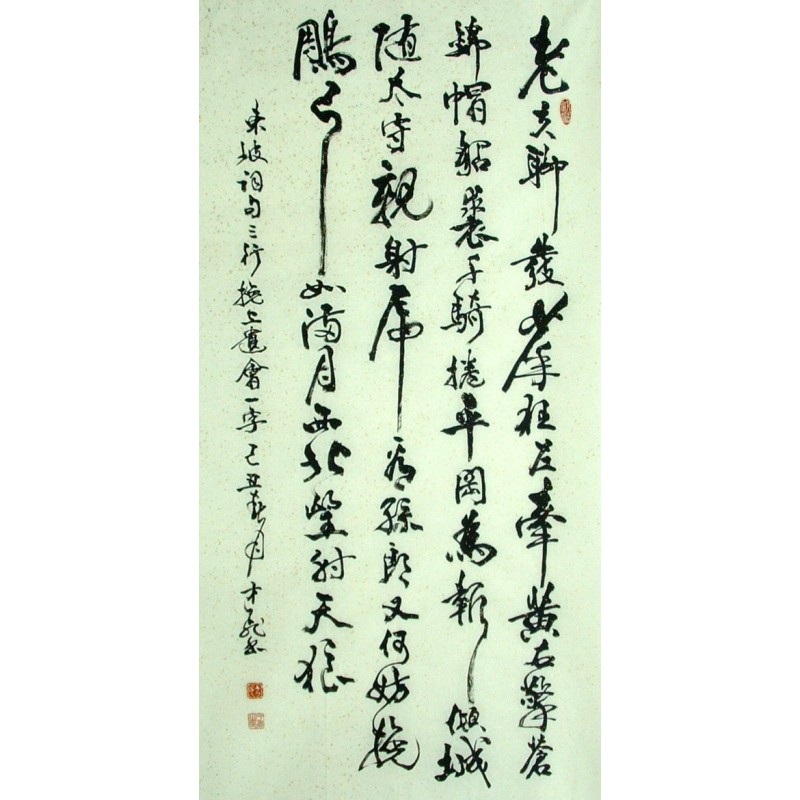 老夫聊發少年狂左牽黃右擎蒼
錦帽貂裘千騎捲平岡為報傾城
隨太守親射虎看孫郎又何妨挽
鵰弓如滿月西北望射天狼
東坡詞句三行挽上遺會一字己丑春月才書